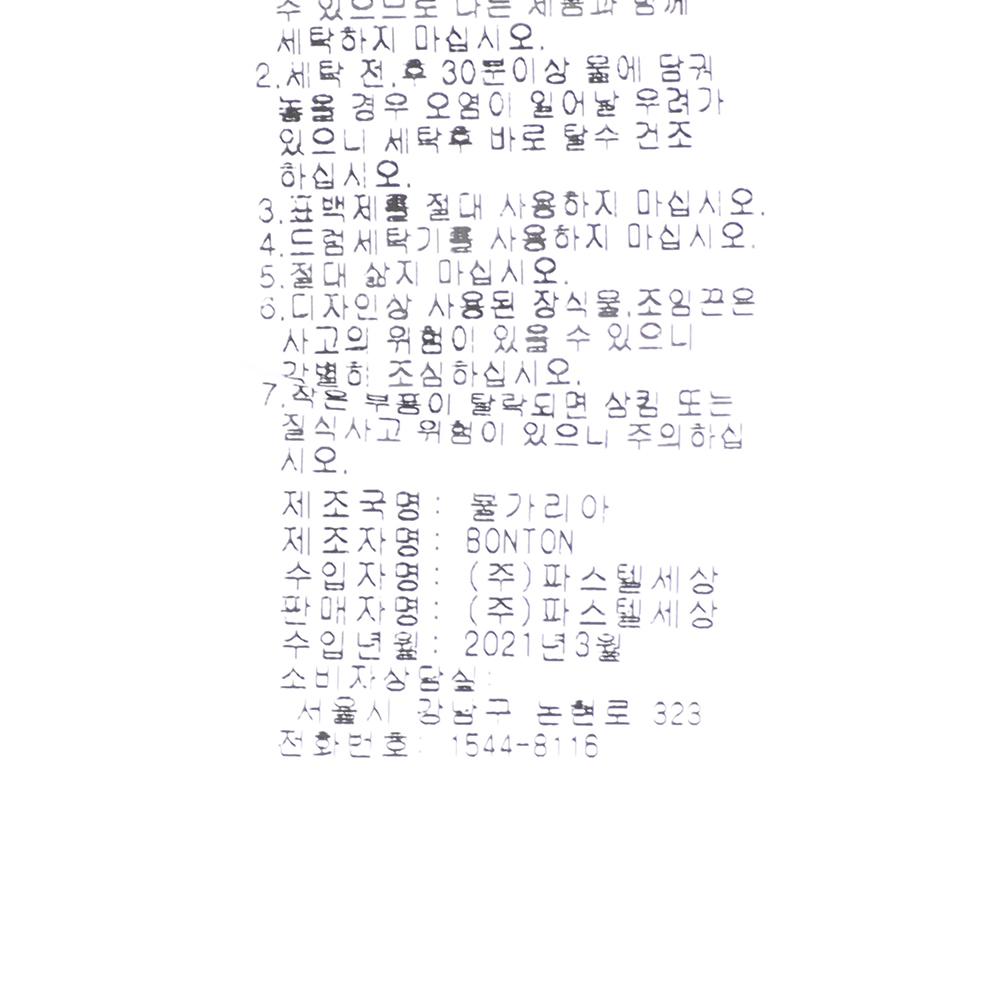 수 있으므로 다른 제품과 함께
세탁하지 마십시오.
2.세탁 전,후 30분이상 물에 담궈
놓을 경우 오염이 일어날 우려가
있으니 세탁후 바로 탈수 건조
하십시오.
3.표백제를 절대 사용하지 마십시오.
4.드럼세탁기를 사용하지 마십시오.
5.절대 삶지 마십시오.
6.디자인상 사용된 장식물,조임끈은
사고의 위험이 있을 수 있으니
각별히 조심하십시오.
7.작은 부품이 탈락되면 삼킴 또는
질식사고 위험이 있으니 주의하십
시오.
제조국명: 불가리아
제조자명: BONTON
수입자명: (주)파스텔세상
판매자명: (주)파스텔세상
수입년월: 2021년3월
소비자상담실:
서울시 강남구 논현로 323
전화번호: 1544-8116